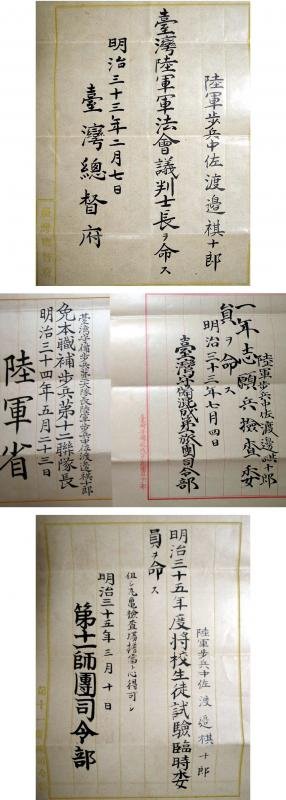 陸軍步兵中佐 渡邊祺十郎
臺灣陸軍軍法會議判士長ヲ命ス
明治三十三年二月七日
臺灣總督府
陸軍步兵中佐渡邊祺十郎
一年志願兵檢查委
員ヲ命ス
明治三十三年七月四日
臺灣守備混成第 旅團司令部
臺灣守備步兵第 大隊長陸軍步兵中佐渡邊祺十郎
免本職補步兵第十二聯隊長
明治三十四年五月二十三日
陸軍省
陸軍步兵中佐 渡邊祺十郎
明治三十五年度將校生徒試驗臨時委
員ヲ命ス
但シ丸龜檢查場擔當ト心得可シ
明治三十五年三月十日
第十一師團司令部